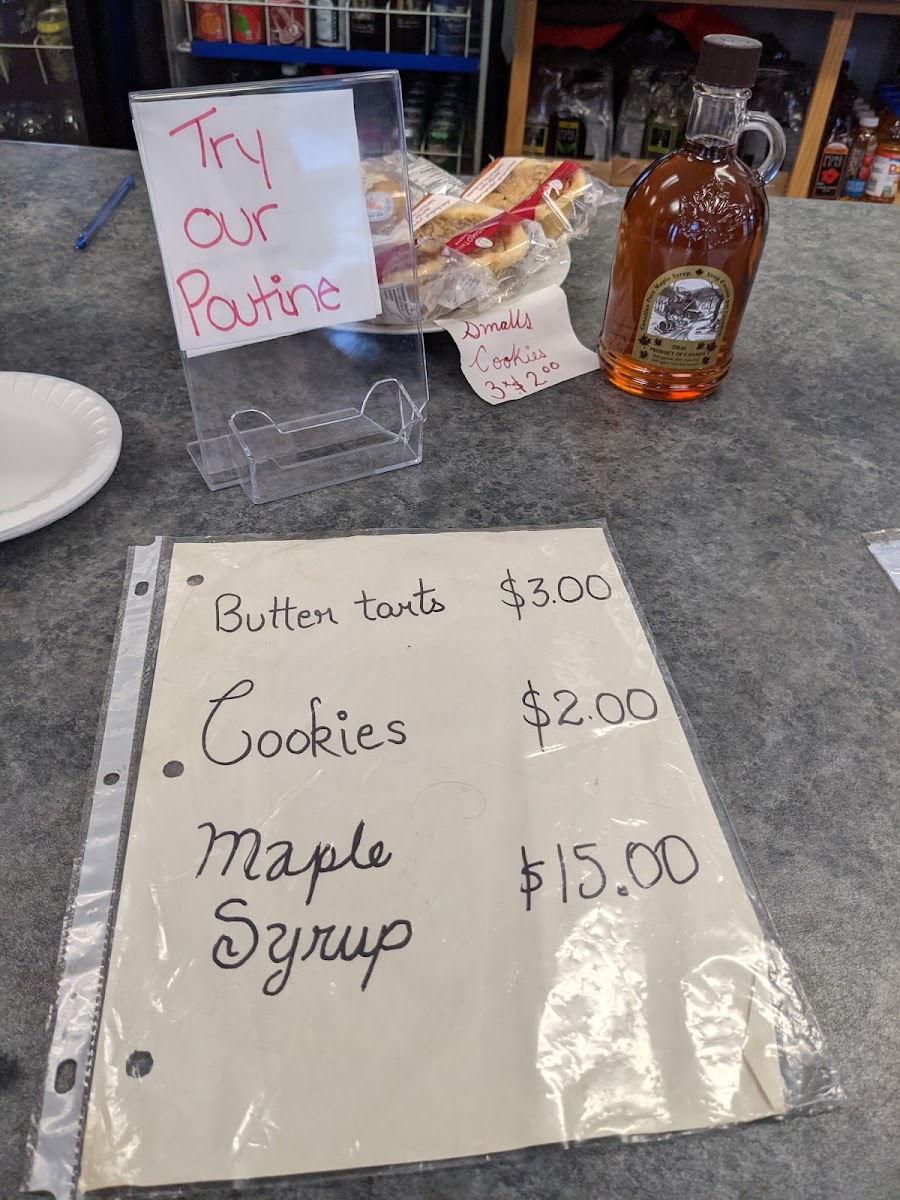 Try
our
Poutine
Smalls
Cookies
3x$2.00
Canadian Pure Maple Syrup
250 ml
PRODUCT OF CANADA
Butter tarts $3.00
Cookies $2.00
Maple
Syrup $15.00